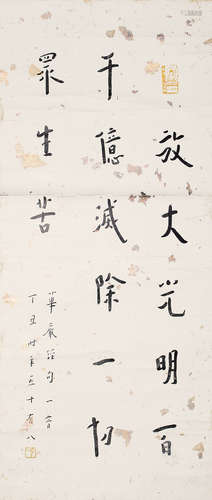 放大光明百
千億滅除一切
眾生苦
華嚴經句一
丁丑時年五十有八